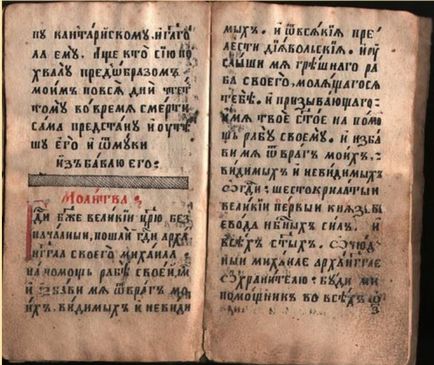 пу кантарийскому. и глаго
ла ему. аще кто сїю по
хвалу предъѡбразомъ
моимъ повсѧ дни чтетъ
тому во времѧ смерти
сама предстану и ѡутѣ
шу его и ѿмуки
изъбавлю его:
Молитва.
Гди бже великїи црю без
началныи, пошли гди арха
нгла своего михаила
на помощь рабѣ своеи, и
изъбави мѧ ѿ врагъ мо
ихъ. видимыхъ и невиди
мыхъ. и ѿ всѧкїѧ пре
лести дїѧволскїѧ. и ѹ
слыши мѧ грѣшнаго ра
ба своего, молѧщагосѧ
тебѣ. и призывающаго
имѧ твое стое на помо
щь рабу своему. и изба
ви мѧ ѿ врагъ моихъ.
видимыхъ и невидимыхъ
шестокрилатыи
великїи первыи кнѧзь и
евода нбныхъ силъ. и
всѣхъ стыхъ. ѽ чюд
ныи михаиле арханглє
сохранителю: буди ми
помощникъ во всѣхъ